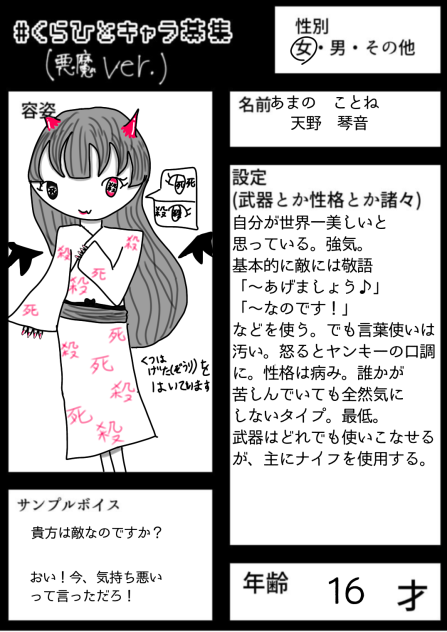 #くらひとキャラ募集
(悪魔ver.)
性別
女・男・その他
容姿
名前 あまの ことね
天野 琴音
死
殺
殺
殺
死
殺
死
死
殺
死
殺
死
殺
くつは
げた(ぞうり)を
はいています
設定
(武器とか性格とか諸々)
自分が世界一美しいと
思っている。強気。
基本的に敵には敬語
「〜あげましょう♪」
「〜なのです!」
などを使う。でも言葉使いは
汚い。怒るとヤンキーの口調
に。性格は病み。誰かが
苦しんでいても全然気に
しないタイプ。最低。
武器はどれでも使いこなせる
が、主にナイフを使用する。
サンプルボイス
貴方は敵なのですか?
おい!今、気持ち悪い
って言っただろ!
年齢 16 才